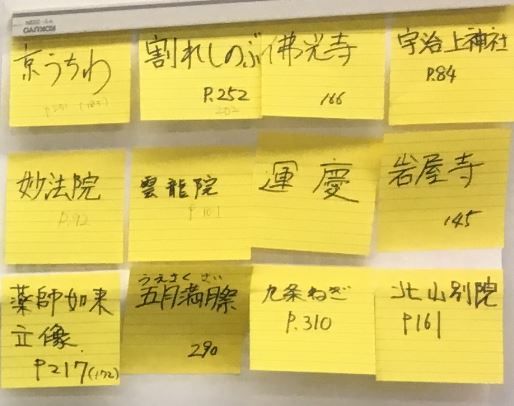 KOKUYO
京うちわ
割れしのぶ
P.252
202
佛光寺
166
宇治上神社
P.84
妙法院
P.92
雲龍院
P101
運慶
岩屋寺
145
薬師如来
立像
P217(172)
うえさく さい
五月満月祭
290
九条ねぎ
P.310
北山別院
P161